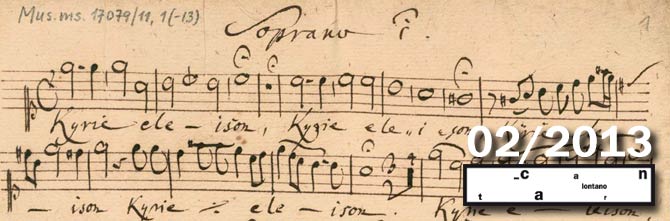 Mus.ms. 17079/11, 1(-13)
Soprano 1.
1
Kyrie ele - ison, Kyrie ele - i son
02/2013
- ison Kyrie ele - ison. Kyrie e - leison
-c a n
lontano
t a r